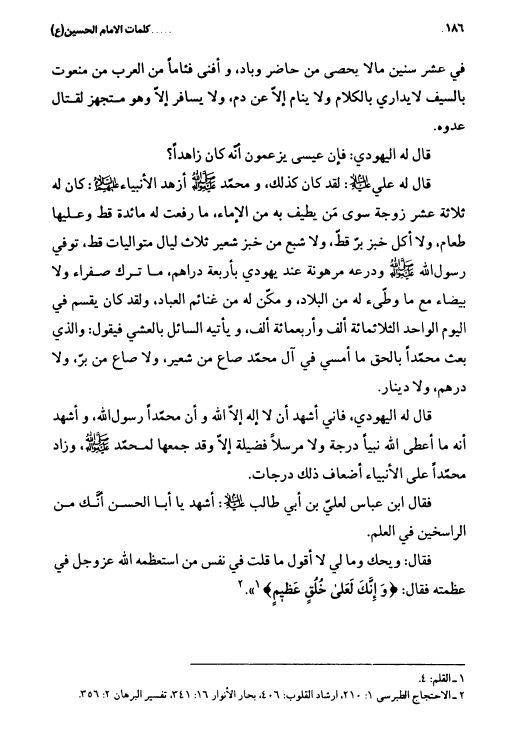 ١٨٦ ..... كلمات الامام الحسين(ع)
في عشر سنين مالا يحصى من حاضر وباد، و أفنى فئاماً من العرب من منعوت
بالسيف لايداري بالكلام ولا ينام إلاّ عن دم، ولا يسافر إلاّ وهو متجهز لقتال
عدوه.
قال له اليهودي: فإن عيسى يزعمون أنّه كان زاهداً؟
قال له علي عليه السلام: لقد كان كذلك، و محمّد صلى الله عليه وآله أزهد الأنبياء عليهم السلام: كان له
ثلاثة عشر زوجة سوى مَن يطيف به من الإماء، ما رفعت له مائدة قط وعليها
طعام، ولا أكل خبز برّ قطّ، ولا شبع من خبز شعير ثلاث ليال متواليات قط، توفي
رسول الله صلى الله عليه وآله ودرعه مرهونة عند يهودي بأربعة دراهم، ما ترك صفراء ولا
بيضاء مع ما وطّىء له من البلاد، و مكّن له من غنائم العباد، ولقد كان يقسم في
اليوم الواحد الثلاثمائة ألف وأربعمائة ألف، و يأتيه السائل بالعشي فيقول: والذي
بعث محمّداً بالحق ما أمسي في آل محمّد صاع من شعير، ولا صاع من برّ، ولا
درهم، ولا دينار.
قال له اليهودي، فاني أشهد أن لا إله إلاّ الله و أن محمّداً رسول الله، و أشهد
أنه ما أعطى الله نبياً درجة ولا مرسلاً فضيلة إلاّ وقد جمعها لمحمّد صلى الله عليه وآله، وزاد
محمّداً على الأنبياء أضعاف ذلك درجات.
فقال ابن عباس لعليّ بن أبي طالب عليه السلام: أشهد يا أبا الحسن أنّك من
الراسخين في العلم.
فقال: ويحك وما لي لا أقول ما قلت في نفس من استعظمه الله عزوجل في
عظمته فقال: ﴿وَ إِنَّكَ لَعَلىٰ خُلُقٍ عَظِيمٍ﴾١».٢
١ ـ القلم: ٤.
٢ ـ الاحتجاج الطبرسى ١: ٢١٠، ارشاد القلوب: ٤٠٦، بحار الأنوار ١٦: ٣٤١، تفسير البرهان ٢: ٣٥٦.